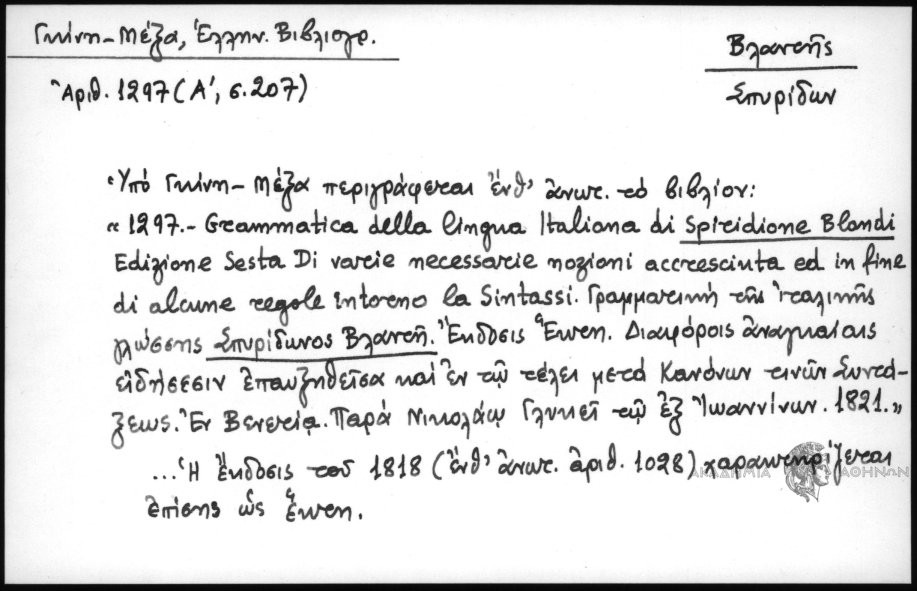 Γκίνη-Μέξα, Ἑλλην. Βιβλιογρ.
Ἀριθ. 1297 (Α', σ. 207)
Βλαντῆς
Σπυρίδων
Ὑπό Γκίνη-Μέξα περιγράφεται ἐνθ' ἀνωτ. τό βιβλίον:
« 1297.- Grammatica della lingua Italiana di Spiridione Blandi
Edizione Sesta Di varie necessarie nozioni accresciuta ed in fine
di alcune regole intorno la Sintassi. Γραμματική τῆς ἰταλικῆς
γλώσσης Σπυρίδωνος Βλαντῆ. Ἔκδοσις Ἕκτη. Διαφόροις ἀναγκαίαις
εἰδήσεσιν ἐπαυξηθεῖσα καί ἐν τῷ τέλει μετά Κανόνων τινῶν Συντά-
ξεως. Ἐν Βενετίᾳ. Παρά Νικολάῳ Γλυκεῖ τῷ ἐξ Ἰωαννίνων. 1821.»
... Ἡ ἔκδοσις τοῦ 1818 (ἔνθ' ἀνωτ. ἀριθ. 1028) χαρακτηρίζεται
ἐπίσης ὡς ἕκτη.
ΑΚΑΔΗΜΙΑ ΑΘΗΝΩΝ